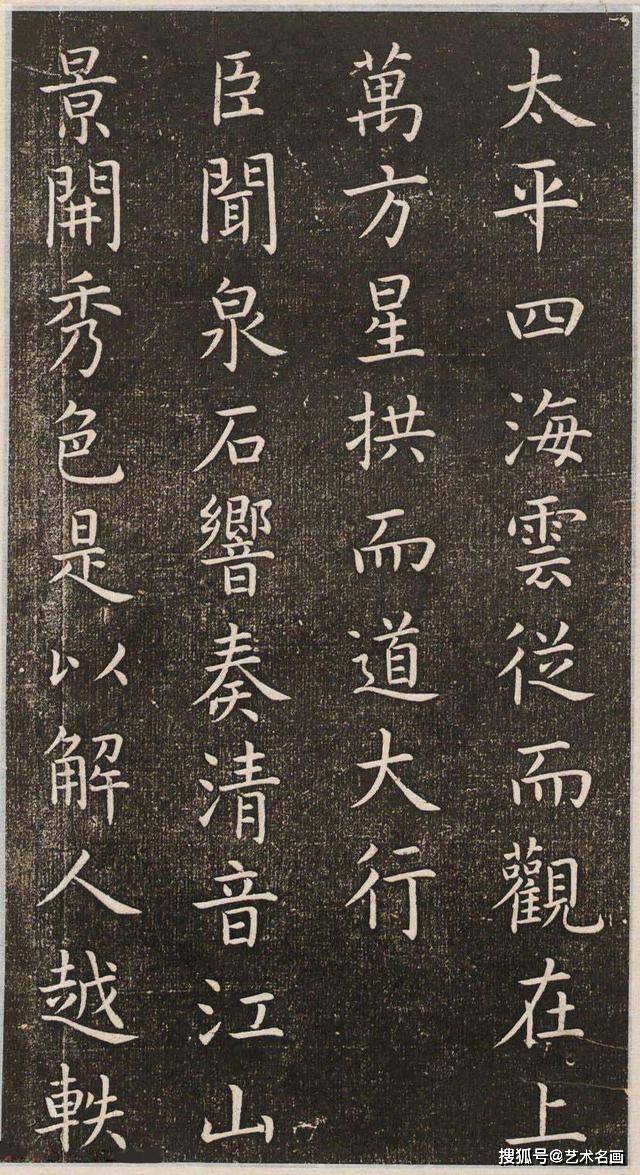 太平四海雲從而觀在上
萬方星拱而道大行
臣聞泉石響奏清音江山
景開秀色是以解人越軼
搜狐号@艺术名画